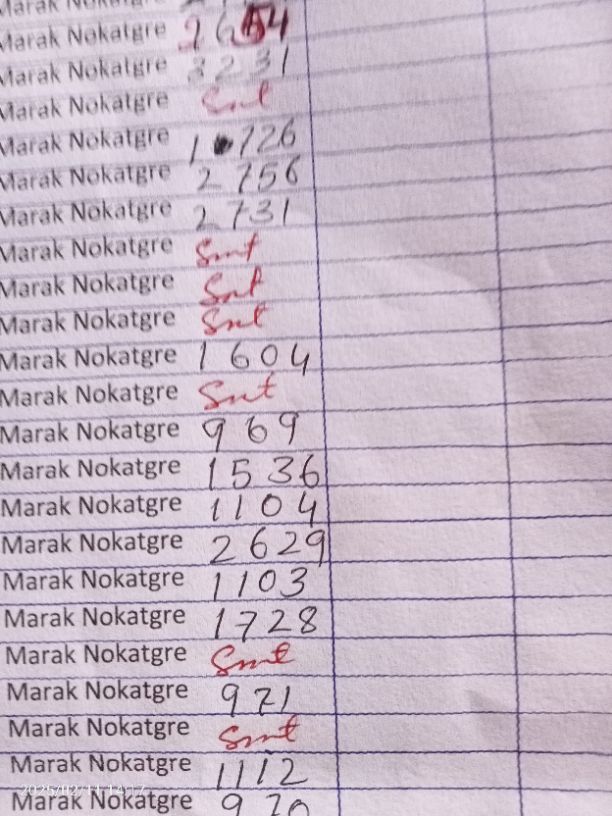 Marak Nokatgre
Marak Nokatgre 2654
Marak Nokatgre 3231
Marak Nokatgre Smt
Marak Nokatgre 1 726
Marak Nokatgre 2756
Marak Nokatgre 2731
Marak Nokatgre Smt
Marak Nokatgre Smt
Marak Nokatgre Smt
Marak Nokatgre 1604
Marak Nokatgre Smt
Marak Nokatgre 969
Marak Nokatgre 1536
Marak Nokatgre 1104
Marak Nokatgre 2629
Marak Nokatgre 1103
Marak Nokatgre 1728
Marak Nokatgre Smt
Marak Nokatgre 971
Marak Nokatgre Smt
Marak Nokatgre 1112
2025/02/11 14:17
Marak Nokatgre 970